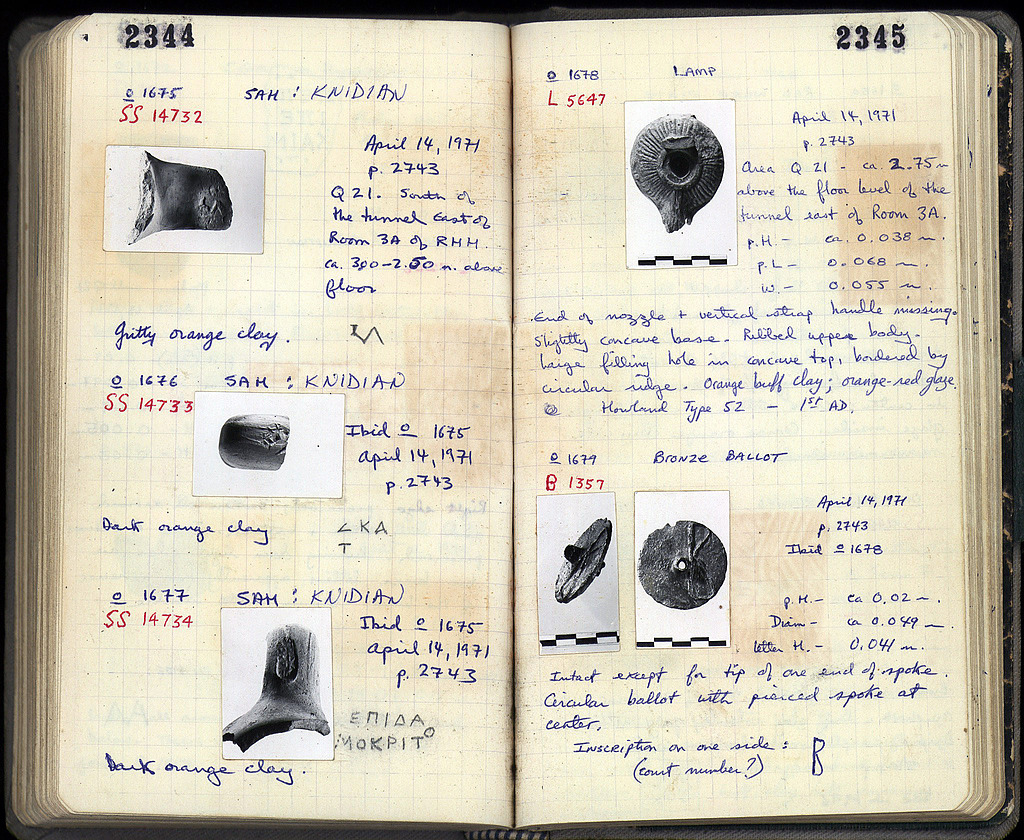 2344
o 1675 SAH : KNIDIAN
SS 14732
April 14, 1971
p. 2743
Q 21. South of
the tunnel East of
Room 3A of RHH.
ca. 300-2.50 m. above
floor
Gritty orange clay.
o 1676 SAH : KNIDIAN
SS 14733
Ibid o 1675
April 14, 1971
p. 2743
Dark orange clay
ΚΑ
Τ
o 1677 SAH : KNIDIAN
SS 14734
Ibid o 1675
April 14, 1971
p. 2743
ΕΠΙΔΑ
ΜΟΚΡΙΤΟ
Dark orange clay.
2345
o 1678 LAMP
L 5647
April 14, 1971
p. 2743
Area Q 21 - ca. 2.75m
above the floor level of the
tunnel east of Room 3A.
p.H. - ca. 0.038 m.
p.L - 0.068 m.
W. - 0.055 m.
End of nozzle + vertical strap handle missing.
Slightly concave base. Ribbed upper body.
Large filling hole in concave top, bordered by
circular ridge. Orange buff clay; orange-red glaze.
Howland Type 52 - 1st AD.
o 1679 BRONZE BALLOT
B 1357
April 14, 1971
p. 2743
Ibid o 1678
p.H. - ca 0.02 m.
Diam - ca 0.049 m.
letter H. - 0.041 m.
Intact except for tip of one end of spoke.
Circular ballot with pierced spoke at
center.
Inscription on one side : B
(court number?)